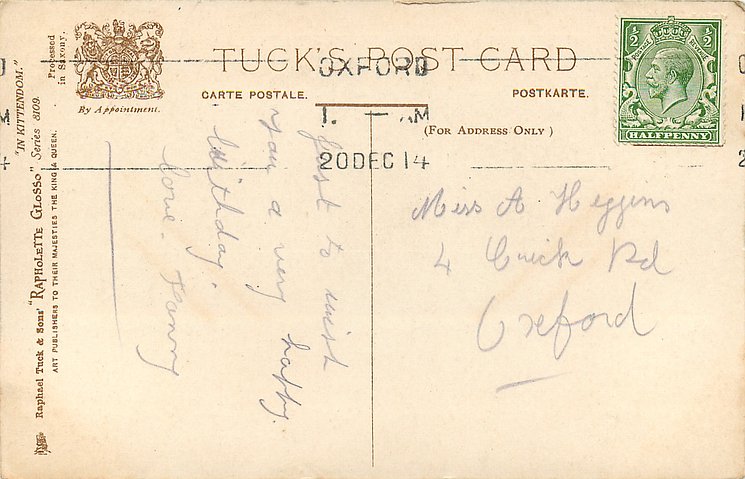 TUCK'S POST CARD
CARTE POSTALE.
POSTKARTE.
(FOR ADDRESS ONLY)
By Appointment.
Processed
in Saxony.
"IN KITTENDOM."
Raphael Tuck & Sons' "RAPHOLETTE GLOSSO" Series 8109.
ART PUBLISHERS TO THEIR MAJESTIES THE KING & QUEEN.
OXFORD
1. — AM
20 DEC 14
POSTAGE REVENUE
½ ½
HALFPENNY
Just to wish
you a very happy
birthday.
love. Fanny
Miss A Higgins
4 Rd
Oxford